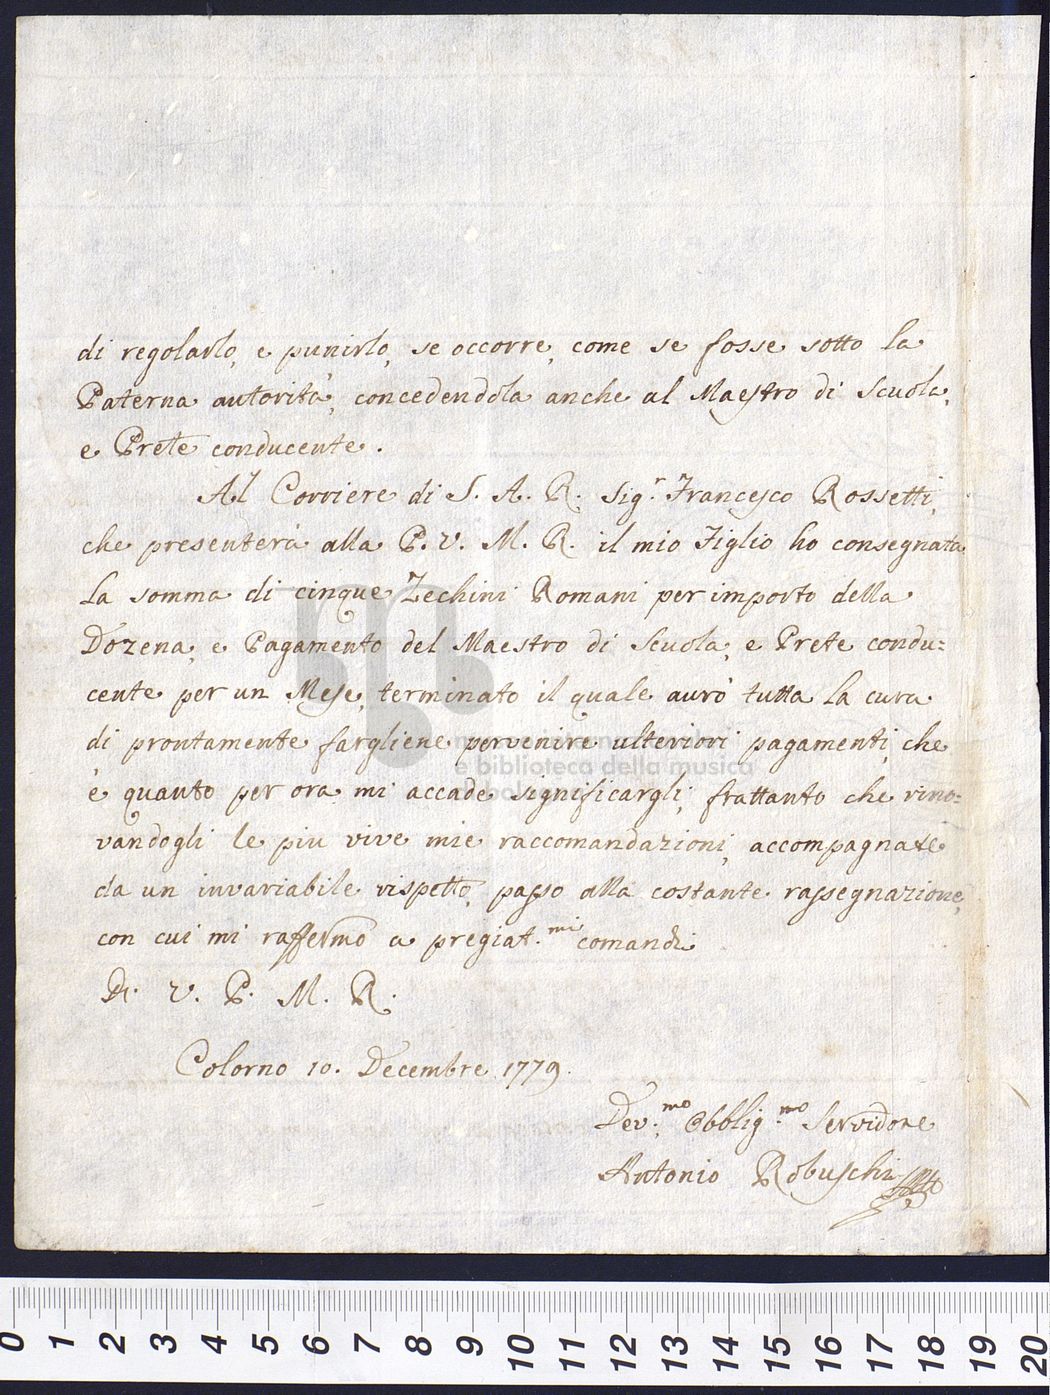 di regolarlo, e punirlo, se occorre, come se fosse sotto la
Paterna autorità, concedendola anche al Maestro di Scuola,
e Prete conducente.
Al Corriere di S. A. R. Sig.r Francesco Rossetti,
che presenterà alla P. V. M. R. il mio Figlio ho consegnata
la somma di cinque Zechini Romani per importo della
Dozena, e Pagamento del Maestro di Scuola, e Prete condu=
cente per un Mese, terminato il quale aurò tutta la cura
di prontamente fargliene pervenire ulteriori pagamenti, che
è quanto per ora mi accade significargli, frattanto che rino=
vandogli le piu vive mie raccomandazioni, accompagnate
da un invariabile rispetto, passo alla costante rassegnazione,
con cui mi raffermo a pregiat.mi comandi
Di V. P. M. R.
Colorno 10. Decembre 1779.
Dev.mo Obblig.mo Servidore
Antonio Robuschi
e biblioteca della musica
0 1 2 3 4 5 6 7 8 9 10 11 12 13 14 15 16 17 18 19 20